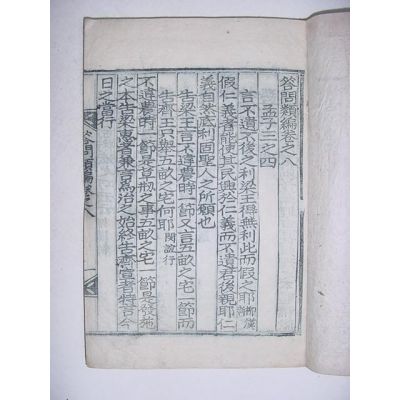 答問類編卷之八
孟子三之四
言不遺不後之利梁王得無利此而假之耶
假仁義者能使其民興於仁義而不遺君後親耶仁
義自然底利固聖人之所願也
告梁王言不違農時一節又言五畝之宅一節而
告齊王只與五畝之宅何耶
不違農時一節是草刱之事五畝之宅一節是發施
之本告梁惠者兼言爲治之始終告齊宣者特言今
日之當行
答問類編卷之八